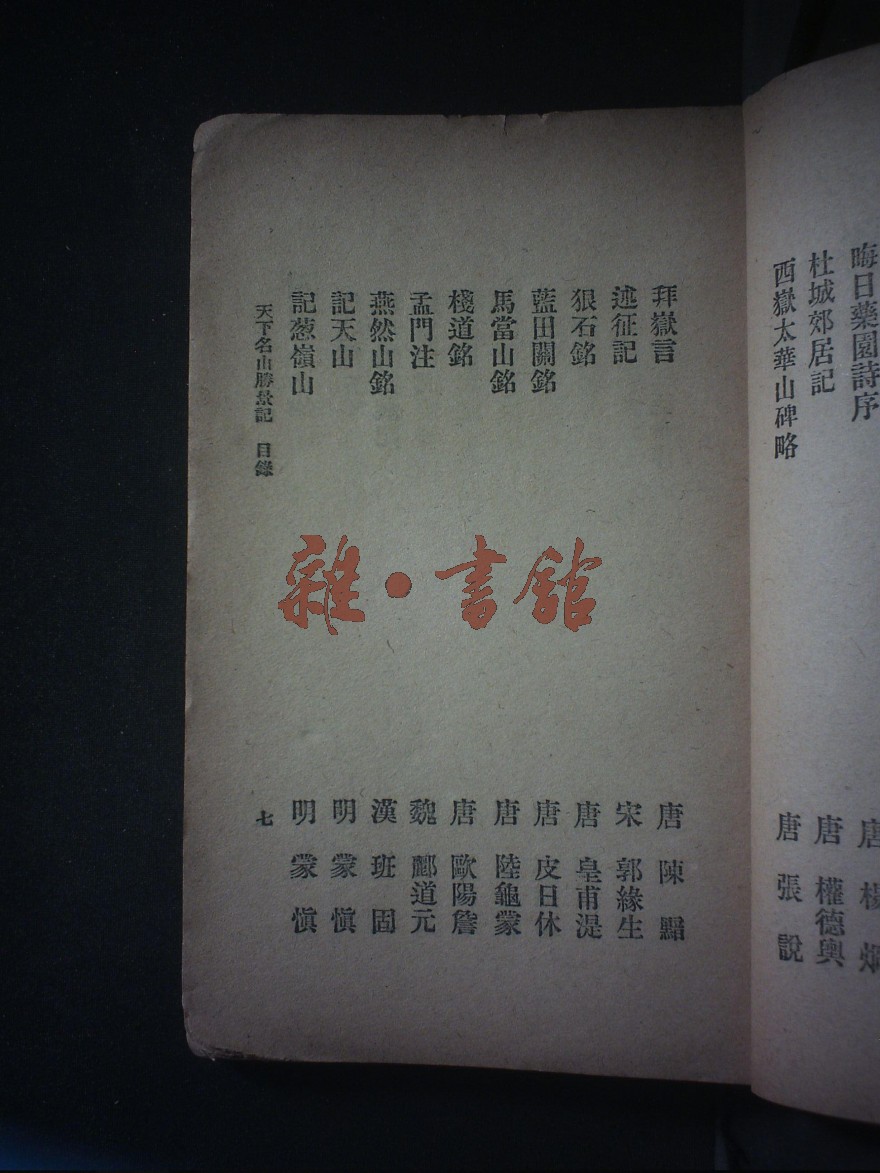 晦日藥園詩序 唐 楊炯
杜城郊居記 唐 權德輿
西嶽太華山碑略 唐 張說
拜嶽言 唐 陳黯
述征記 宋 郭緣生
狠石銘 唐 皇甫湜
藍田關銘 唐 皮日休
馬當山銘 唐 陸龜蒙
棧道銘 唐 歐陽詹
孟門注 魏 酈道元
燕然山銘 漢 班固
記天山 明 蒙愼
記葱嶺山 明 蒙愼
天下名山勝景記 目錄 七
雜·書館